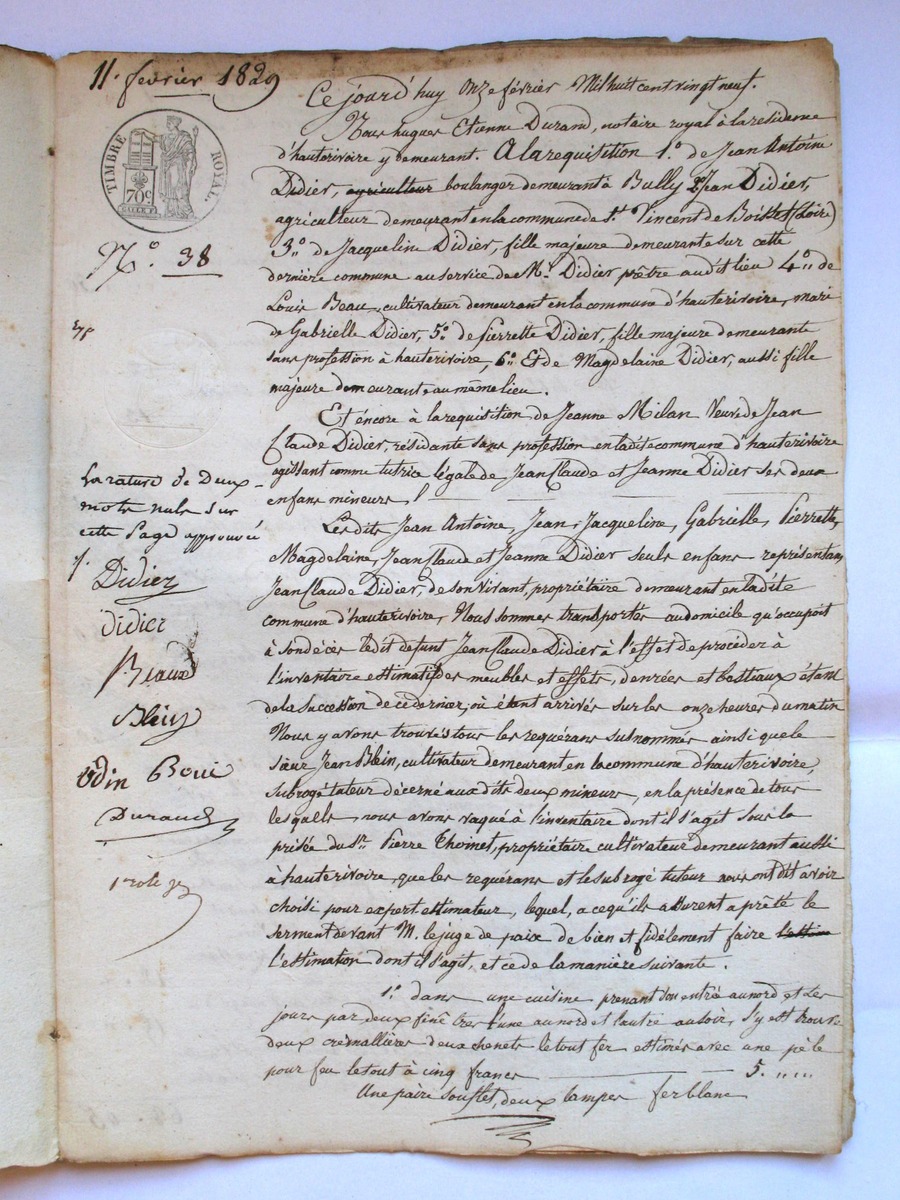 11. fevrier 1829
TIMBRE ROYAL.
70c
N.o 38
La rature de Deux
mots nuls sur
cette Page approuvée
Didier
Didier
Beaux
Blein
Odin Boui
Durand
1er role
Ce jourd'huy onze février Mil huit cent vingt neuf.
Nous hugues Etienne Durand, notaire royal à la résidence
d'hauterivoire y demeurant. A la requisition 1.o de Jean Antoine
Didier, agriculteur boulanger demeurant à Bully 2o Jean Didier,
agriculteur demeurant en la commune de St. Vincent de Boisset (Loire)
3.o de Jacqueline Didier, fille majeure demeurante sur cette
dernière commune au service de Mr. Didier prêtre audit lieu 4.o de
Louis Beau, cultivateur demeurant en la commune d'hauterivoire, mari
de Gabrielle Didier, 5.o de pierrette Didier, fille majeure demeurante
sans profession à hauterivoire, 6.o Et de Magdelaine Didier, aussi fille
majeure demeurante au même lieu.
Et éncore à la requisition de Jeanne Milan Veuve de Jean
Claude Didier, résidante sans profession en ladite commune d'hauterivoire
agissant comme tutrice légale de Jean Claude et Jeanne Didier ses deux
enfans mineurs
Lesdits Jean Antoine, Jean, Jacqueline, Gabrielle, Pierrette,
Magdelaine, Jean Claude et Jeanne Didier seuls enfans représentans
Jean Claude Didier, de son vivant, propriétaire demeurant en ladite
commune d'hauterivoire, Nous sommes transportés au domicile qu'occupoit
à son décès ledit defunt Jean Claude Didier à l'effet de procéder à
l'inventaire estimatif des meubles et effets, denrées et bestiaux étant
de la succession de ce dernier, où étant arrivés sur les onze heures du matin
Nous y avons trouvés tous les requérans susnommés ainsi que le
sieur Jean Blein, cultivateur demeurant en la commune d'hauterivoire,
subrogé tuteur décerné aux dits deux mineurs, en la présence de tous
lesquels nous avons vaqué à l'inventaire dont il s'agit sous la
prisée du Sr. Pierre Thoinet, propriétaire cultivateur demeurant aussi
à hauterivoire, que les requérans et le subrogé tuteur nous ont dit avoir
choisi pour expert estimateur, lequel, a ce qu'ils assurent a prêté le
serment devant M. le juge de paix de bien et fidèlement faire
l'estimation dont il s'agit, et ce de la manière suivante.
1.o dans une cuisine prenant son entrée au nord et ses
jours par deux finêtres l'une au nord et l'autre au soir, s'y est trouvé
deux crémallières deux chenets le tout fer estimés avec une pèle
pour feu le tout à cinq francs 5. " "
Une paire souflet, deux lampes fer blanc